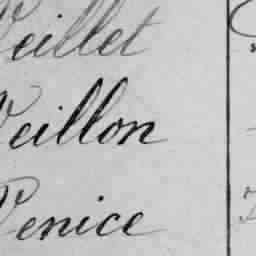 Veillet
Veillon
Venice